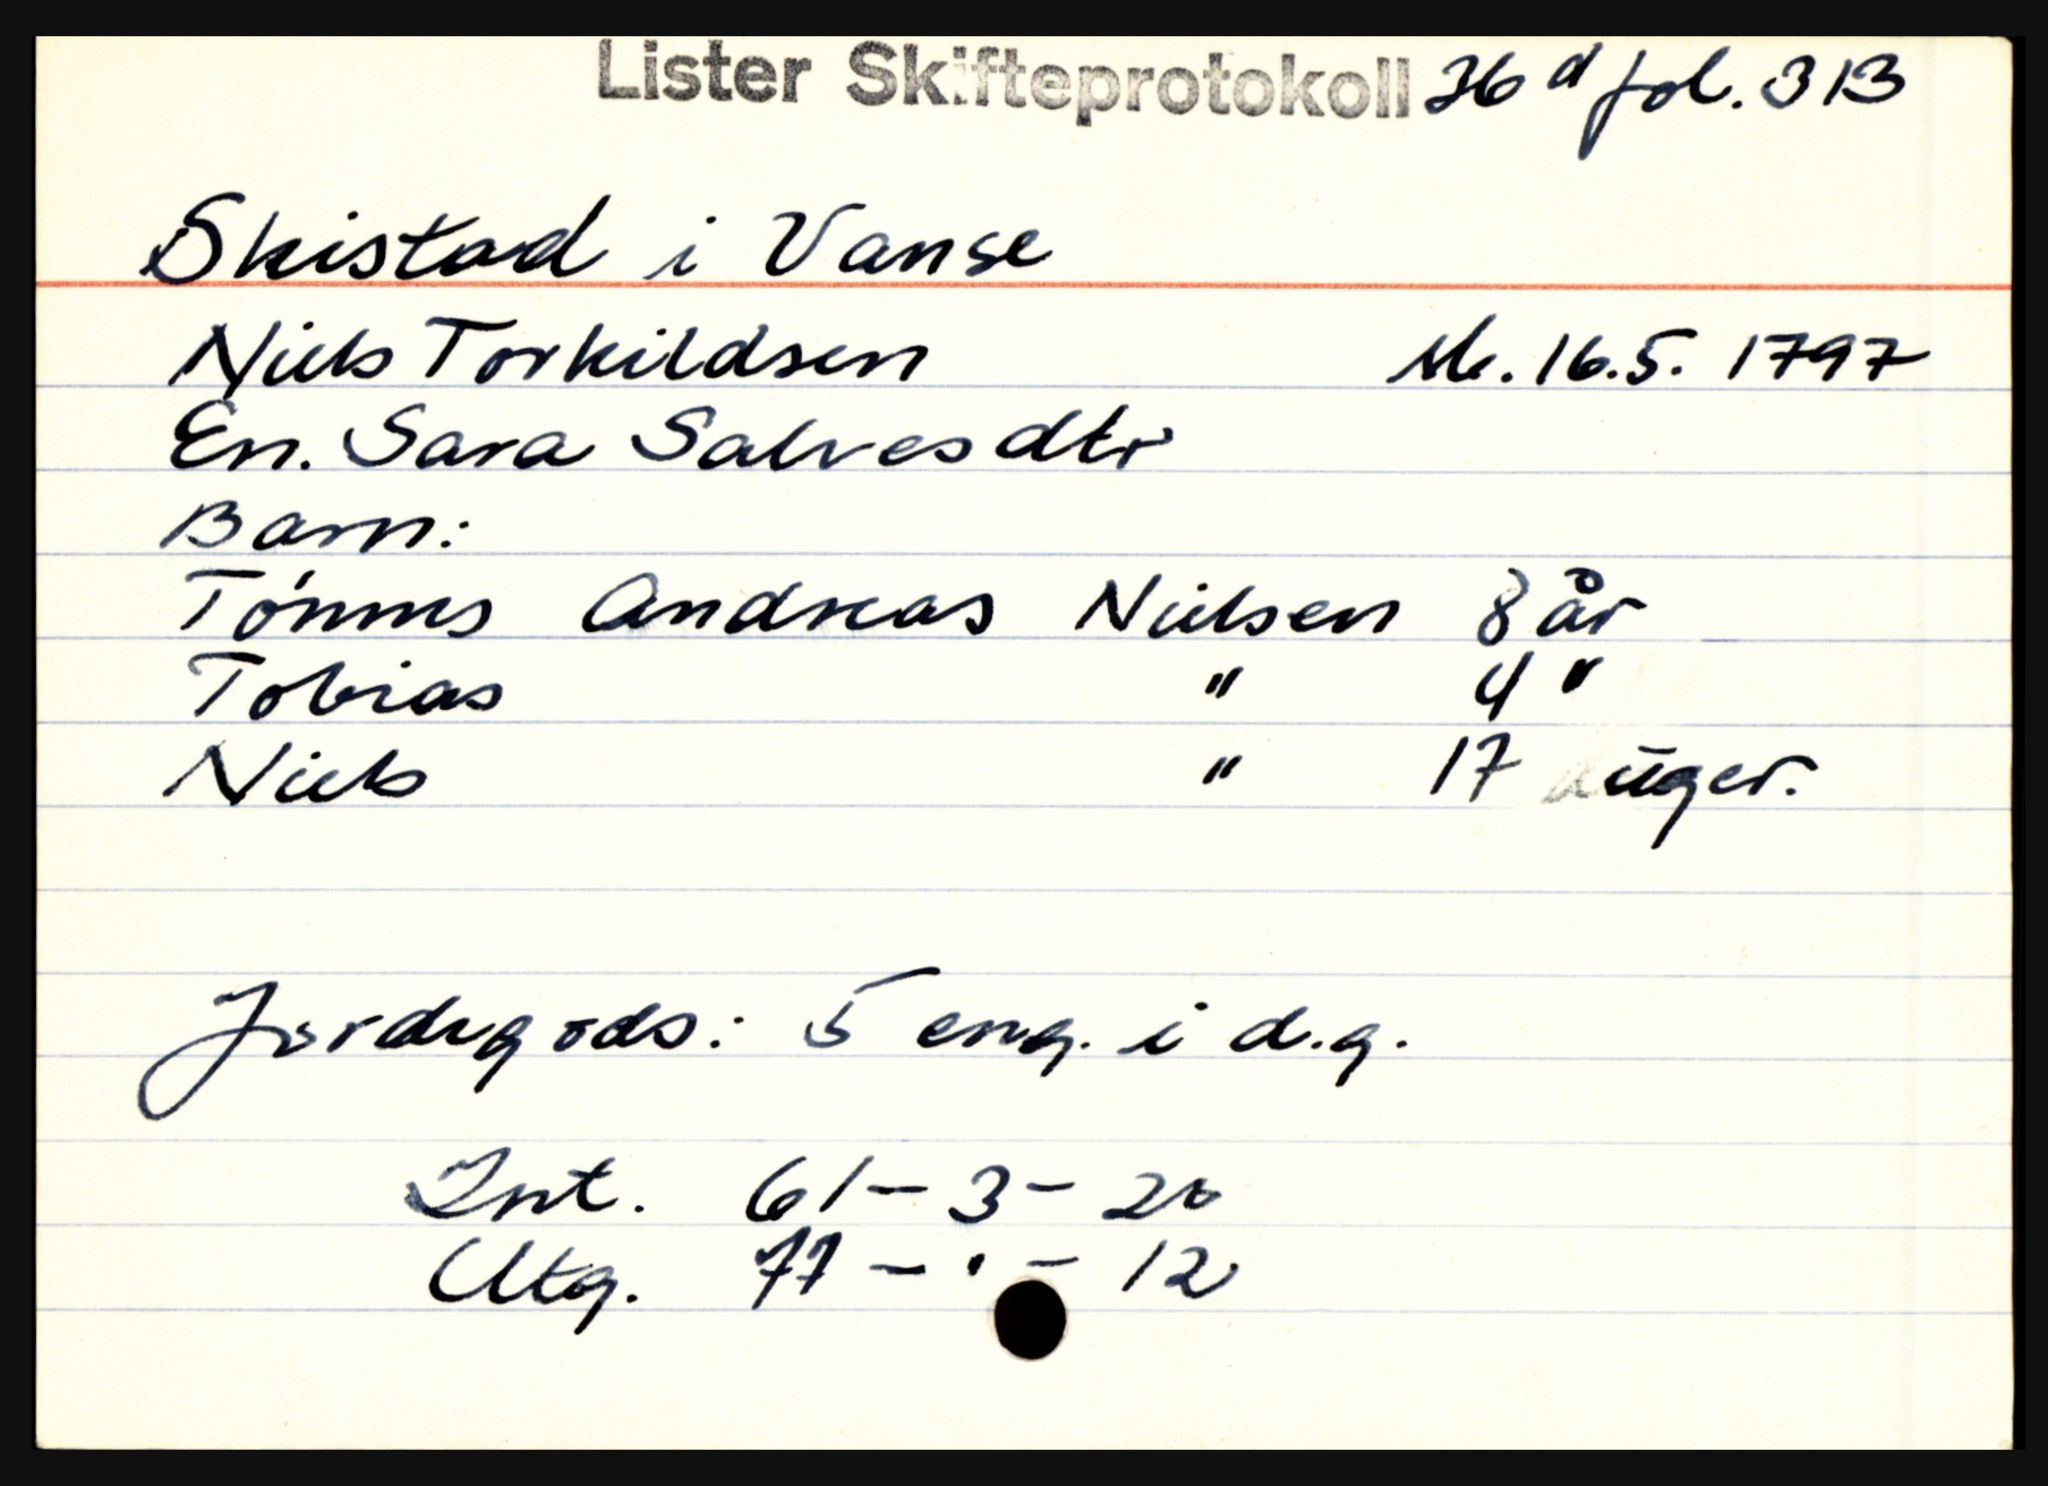 Lister Skifteprotokoll 36 d fol. 313
Skistad i Vanse
Niels Torkildsen 16.5. 1797
En. Sara Salvesdtr
Barn:
Tónnes Andreas Nielsen 8 år
Tobias " 4 "
Niels " 17 uger.
Jordegods: 5 eng. i d.g.
Int. 61 - 3 - 20
Utg. 77 - " - 12